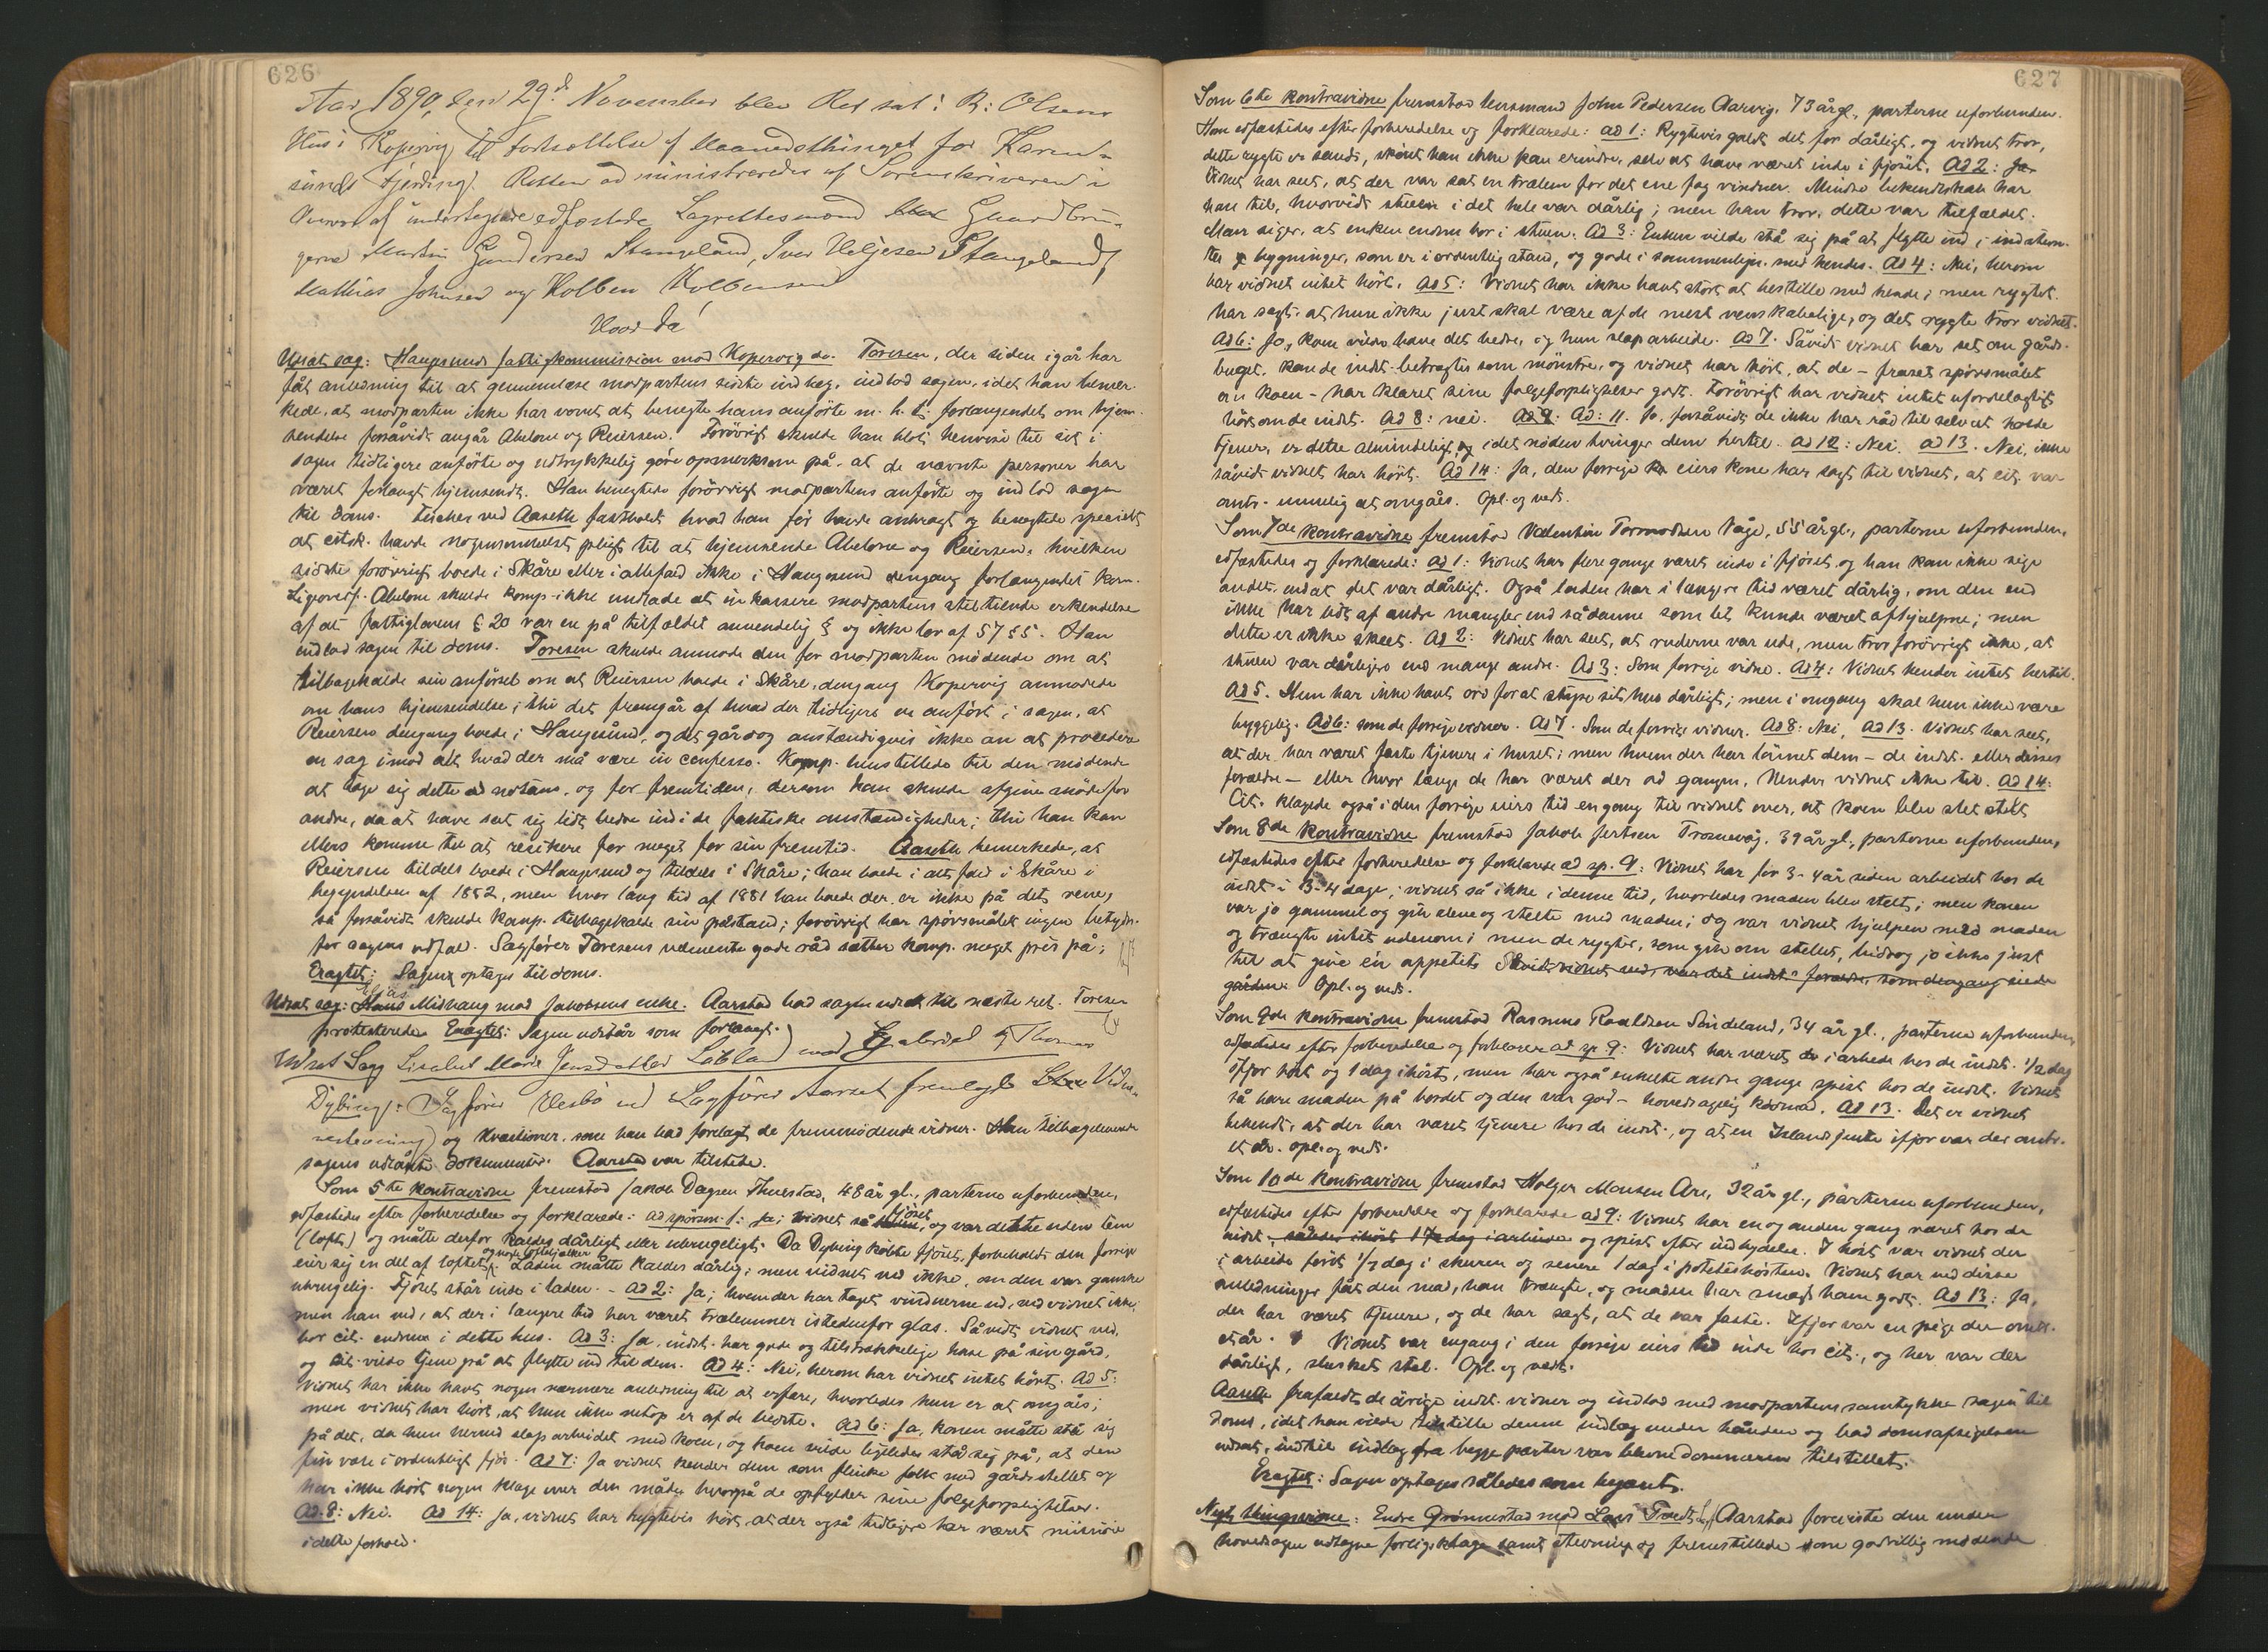 626
Aar 1890, den 29d. November blev Ret sat i R: Olsens
Hus i Kopervig til fortsættelse af Maanedsthinget for Karm-
sunds Fjerding. Retten administreredes af Sorenskriveren i
Overvær af undertegnede edfæstede Lagrettesmænd Gaardbru-
gerne Martin Gundersen Stangeland, Iver Helgesen Stangeland,
Mathias Johnsen og Kolben Kolbensen
Hvor da!
Udsat sag: Haugesunds fattigkommission mod Kopervig do. Toresen, der siden igår har
fåt anledning til at gennemlæse modpartens sidste indlæg, indlod sagen, idet han bemer-
kede, at modparten ikke har vovet at benegte hans anførte m. h. t. forlangendet om hjem-
sendelse forsåvidt angår Abelone og Reiersen. Forøvrigt skulde han blot henvise til sit i
sagen tidligere anførte og udtrykkelig gøre opmerksom på, at de nævnte personer har
været forlangt hjemsendt. Han benegtede forøvrigt modpartens anførte og indlod sagen
til doms. Fischer ved Aaseth fastholdt hvad han før havde anbragt og benegtede specielt
at citsk. havde nogensomhelst pligt til at hjemsende Abelone og Reiersen, hvilken
sidste forøvrigt boede i Skåre eller i allefald ikke i Haugesund dengang forlangendet kom.
Ligeoverf. Abelone skulde komp. ikke undlade at inkassere modpartens stiltiende erkendelse
af at fattiglovens § 20 var en på tilfældet anvendelig § og ikke lov af 5755. Han
indlod sagen til doms. Toresen skulde anmode den for modparten mødende om at
tilbagekalde sin anførsel om at Reiersen boede i Skåre, dengang Kopervig anmodede
om hans hjemsendelse; thi det fremgår af hvad der tidligere er anført i sagen, at
Reiersen dengang boede i Haugesund, og det går dog anstændigvis ikke an at procedere
en sag imod alt hvad der må være in confesso. Komp. henstillede til den mødende
at tage sig dette ad notam, og for fremtiden, dersom han skulde afgive møde for
andre, da at have sat sig lidt bedre ind i de faktiske omstændigheder; thi han kan
ellers komme til at resikere for meget for sin fremtid. Aaseth bemerkede, at
Reiersen tildels boede i Haugesund og tildels i Skåre; han boede i alt fald i Skåre i
begyndelsen af 1882, men hvor lang tid af 1881 han boede der, er ikke på det rene,
så forsåvidt skulde komp. tilbagekalde sin påstand; forøvrigt har spørsmålet ingen betydn.
for sagens udfald. Sagfører Toresens velmente gode råd sætter komp. meget pris på;
Eragtet: Sagen optages til doms.
Udsat sag: Elias Midhaug mod Jakobsens enke. Aarstad bad sagen udsat til næste ret. Toresen
protesterede. Eragtet: Sagen udstår som forlangt.
Udsat Sag Lisabet Marie Jensdatter Løbland mod Gabriel & Thomas
Dybing: Sagfører Vesbø ved Sagfører Aarset fremlagde Vidne-
stevning og kvæstioner, som han bad forelagt de fremmødende vidner. Han tilbageleverede
sagens udlånte dokumenter. Aarstad var tilstede.
Som 5te kontravidne fremstod Jakob Dagsen Thuestad, 48 år gl., parterne uforbunden,
edfæstedes efter forberedelse og forklarede: ad spørsm. 1: Ja; vidnet så fjöset, og var dette uden lem
(loft) og måtte derfor kaldes dårligt eller ubrugeligt. Da Dybing kjøbte fjöset, forbeholdt den forrige
eier sig en del af loftet og nogle loftsbjelker. Laden måtte kaldes dårlig; men vidnet ved ikke, om den var ganske
ubrugelig. Fjöset står inde i laden. - Ad 2: Ja; hvem der har taget vinduerne ud, ved vidnet ikke,
men han ved, at der i længere tid har været trælemmer istedenfor glas. Såvidt vidnet ved,
bor cit. endnu i dette hus. Ad 3: Ja, indst. har gode og tilstrækkelige huse på sin gård,
og cit. vilde tjene på at flytte ind til dem. Ad 4: Nei, herom har vidnet intet hørt. Ad 5:
Vidnet har ikke havt nogen nærmere anledning til at erfare, hvorledes hun er at omgåes;
men vidnet har hørt, at hun ikke netop er af de bedste. Ad 6: Ja, konen måtte stå sig
på det, da hun herved slap arbeidet med koen, og koen vilde ligeledes stå sig på, at den
fik være i ordentligt fjös. Ad 7: Ja vidnet kender dem som flinke folk med gårdsstellet og
har ikke hørt nogen klage over den måde hvorpå de opfylder sine folgeforpligtelser.
Ad 8: Nei. Ad 14: Ja, vidnet har rygtevis hørt, at der også tidligere har været misnöie
i dette forhold.
627
Som 6te kontravidne fremstod lensmand John Pedersen Aarvig, 73 årgl., parterne uforbunden.
Han edfæstedes efter forberedelse og forklarede: ad 1: Rygtevis galdt det for dårligt, og vidnet tror,
dette rygte er sandt, skönt han ikke kan erindre, selv at have været inde i fjöset. Ad 2: Ja
Vidnet har seet, at der var sat en trælem for det ene fag vinduer. Mindre bekendtskab har
han til, hvorvidt stuen i det hele var dårlig; men han tror, dette var tilfældet.
Man siger, at enken endnu bor i stuen. Ad 3: Enken vilde stå sig på at flytte ind i indstevn-
tes bygninger, som er i ordentlig stand, og gode i sammenlign. med hendes. Ad 4: Nei, herom
har vidnet intet hört. Ad 5: Vidnet har ikke havt stort at bestille med hende; men rygtet
har sagt, at hun ikke just skal være af de mest venskabelige, og det rygte tror vidnet.
Ad 6: Ja, koen vilde have det bedre, og hun slap arbeide. Ad 7. Såvidt vidnet har set om gårds-
bruget, kan de indst. betragtes som mönstre, og vidnet har hört, at de - fraset spörsmålet
om koen - har klaret sine folgeforpligtelser godt. Forövrigt har vidnet intet ufordelagtigt
hört om de indst. Ad 8: nei. Ad: 11. Ja, forsåvidt de ikke har råd til selv at holde
tjener, er dette almindeligt, idet nöden tvinger dem hertil. Ad 12: Nei. ad 13. Nei, ikke
såvidt vidnet har hört. Ad 14: Ja, den forrige eiers kone har sagt til vidnet, at cit. var
umulig at omgåes. Opl. og vedt.
Som 7de kontravidne fremstod Valentin Tormodsen Våge, 55 årgl., parterne uforbunden,
edfæstedes og forklarede: ad 1: Vidnet har flere gange været inde i fjöset, og han kan ikke sige
andet, end at det var dårligt. Også laden har i længere tid været dårlig, om den end
ikke har lidt af andre mangler end sådanne som let kunde været afhjulpne; men
dette er ikke skeet. Ad 2: Vidnet har seet, at ruderne var ude, men tror forövrigt ikke, at
stuen var dårligere end mange andre. Ad 3: Som forrige vidne. Ad 4: Vidnet kender intet hertil.
Ad 5. Hun har ikke havt ord for at styre sit hus dårligt; men i omgang skal hun ikke være
hyggelig. Ad 6: som de forrige vidner. Ad 7. Som de forrige vidner. Ad 8: Nei, Ad 13. Vidnet har seet,
at der har været faste tjenere i huset; men hvem der har lönnet dem - de indst. eller disses
forældre - eller hvor længe de har været der ad gangen, kender vidnet ikke til. Ad 14:
Cit. klagede også i den forrige eiers tid engang til vidnet over, at koen blev slet stelt
Som 8de kontravidne fremstod Jakob Jertsen Tronevåg, 39 år gl., parterne uforbunden,
edfæstedes efter forberedelse og forklarede ad sp. 9: Vidnet har for 3-4 år siden arbeidet hos de
indst. i 3-4 dage; vidnet så ikke i denne tid, hvorledes maden blev stelt; men konen
var jo gammel og gik alene og stelte med maden; dog var vidnet hjulpen med maden
og trængte intet udenom; men de rygter, som gik om stellet, bidrog jo ikke just
til at give én appetit. Såvidt vidnet ved, var det indst.s forældre, som dengang eiede
gården. Opl. og vedt.
Som 9de kontravidne fremstod Rasmus Roaldsen Sundeland, 34 år gl., parterne uforbunden,
edfæstedes efter forberedelse og forklarede ad sp. 9: Vidnet har været i arbeide hos de indst. 1/2 dag
ifjor höst og 1 dag ihöst, men har også enkelte andre gange spist hos de indst. Vidnet
så bare maden på bordet og den var god - hovedsagelig ködmad. Ad 13. Det er vidnet
bekendt, at der har været tjenere hos de indst., og at en Islandsjente ifjor var der omtr.
et år. opl. og vedt.
Som 10de kontravidne fremstod Holger Monsen Are, 32 år gl., parterne uforbunden,
edfæstedes efter forberedelse og forklarede ad 9: Vidnet har en og anden gang været hos de
indst., således ihöst 1 1/2 dag i arbeide og spist efter indbydelse. I höst var vidnet der
i arbeide först 1/2 dag i skuren og senere 1 dag i potetes­hösten. Vidnet har ved disse
anledninger fåt den mad, han trængte, og maden har smagt ham godt. Ad 13: Ja,
der har været tjenere, og de har sagt, at de var faste. Ifjor var en pige der omtr.
et år. Vidnet var engang i den forrige eiers tid inde hos cit., og her var der
dårligt, slusket stel. Opl. og vedt.
Aaseth frafaldt de övrige indst. vidner og indlod med modpartens samtykke sagen til
doms, idet han vilde tilstille denne indlæg under hånden og bad domsafsigelsen
udsat, indtil indlæg fra begge parter var blevne dommeren tilstillet.
Eragtet: Sagen optages således som begært.
Nyt thingsvidne: Endre Grönnestad mod Lars Aarstad foreviste den under
hovedsagen udtagne forligsklage samt stevning og fremstillede som godvillig mødende